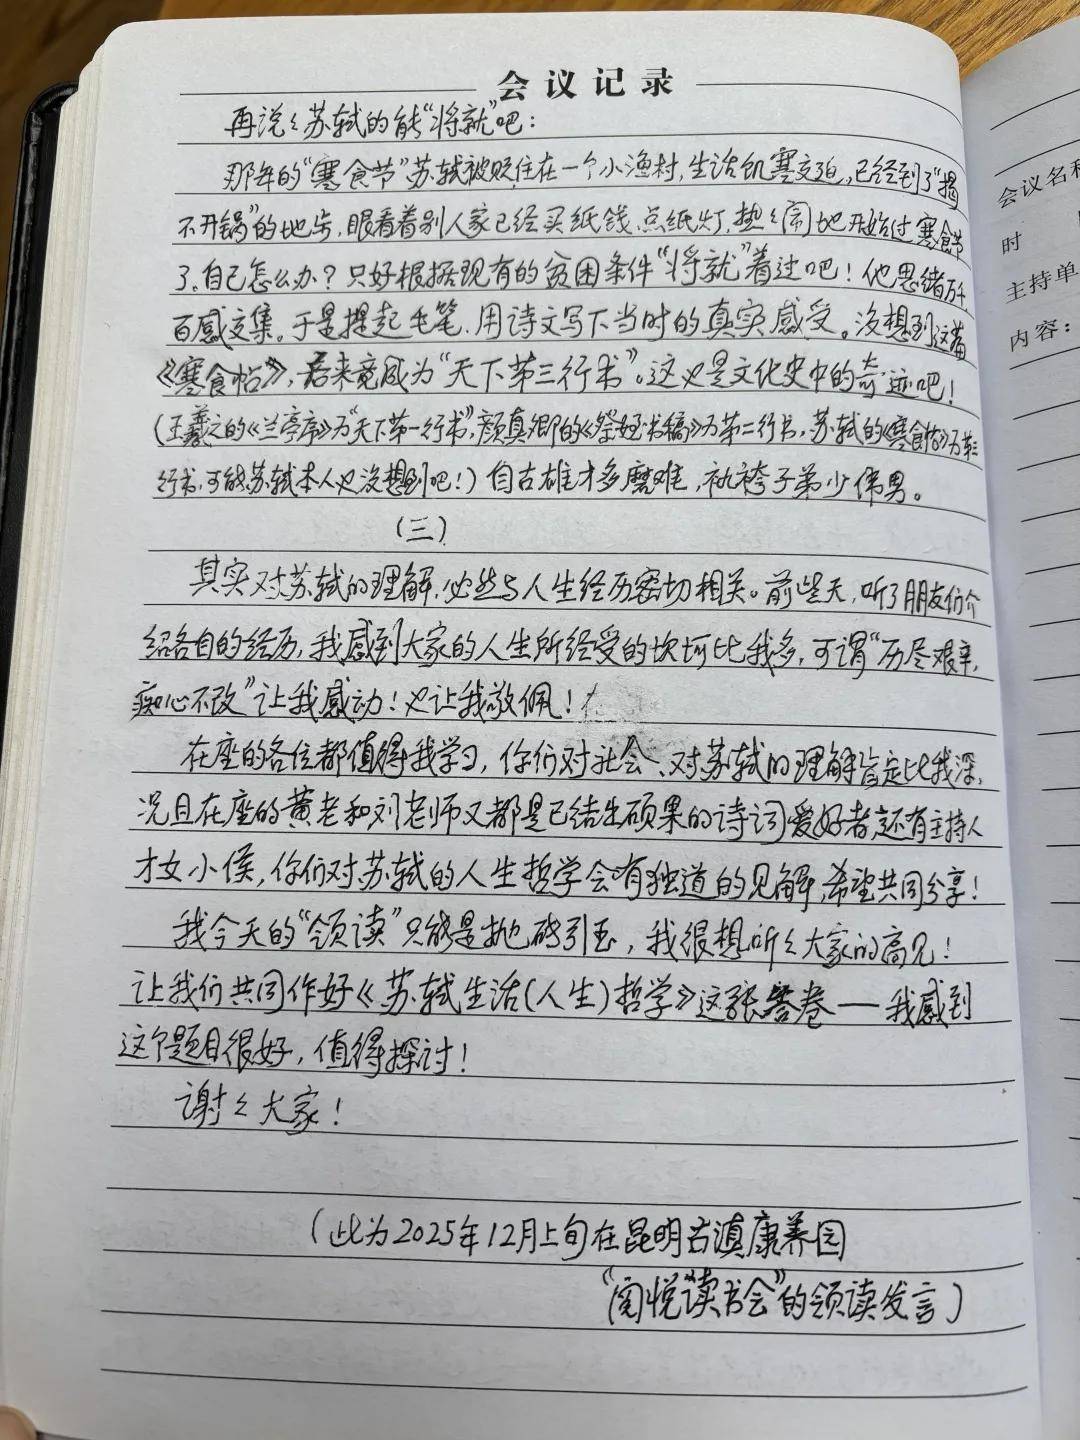 会议记录
再说々苏轼的能“将就”吧：
那年的“寒食节”苏轼被贬住在一个小渔村，生活饥寒交迫，已经到了“揭
不开锅”的地步，眼看着别人家已经买纸钱、点纸灯、热々闹地开始过寒食节
了，自己怎么办？只好根据现有的贫困条件“将就”着过吧！他思绪万千，
百感交集。于是提起毛笔，用诗文写下当时的真实感受。没想到这篇
《寒食帖》，后来竟成为“天下第三行书”。这也是文化史中的奇迹吧！
（王羲之的《兰亭序》为“天下第一行书”，颜真卿的《祭侄书稿》为第二行书，苏轼的《寒食帖》为第三
行书，可能苏轼本人也没想到吧！）自古雄才多磨难，纨袴子弟少伟男。
（三）
其实对苏轼的理解，必然与人生经历密切相关。前些天，听了朋友们介
绍各自的经历，我感到大家的人生所经受的坎坷比我多，可谓“历尽艰辛，
痴心不改”让我感动！也让我敬佩！
在座的各位都值得我学习，你们对社会、对苏轼的理解肯定比我深，
况且在座的黄老和刘老师又都是已结出硕果的诗词爱好者，还有主持人
才女小侯，你们对苏轼的人生哲学会有独道的见解，希望共同分享！
我今天的“领读”只能是抛砖引玉，我很想听々大家的高见！
让我们共同作好《苏轼生活（人生）哲学》这张答卷——我感到
这个题目很好，值得探讨！
谢々大家！
（此为2025年12月上旬在昆明古滇康养园
“阅悦读书会”的领读发言）
会议名称
时
主持单
内容：